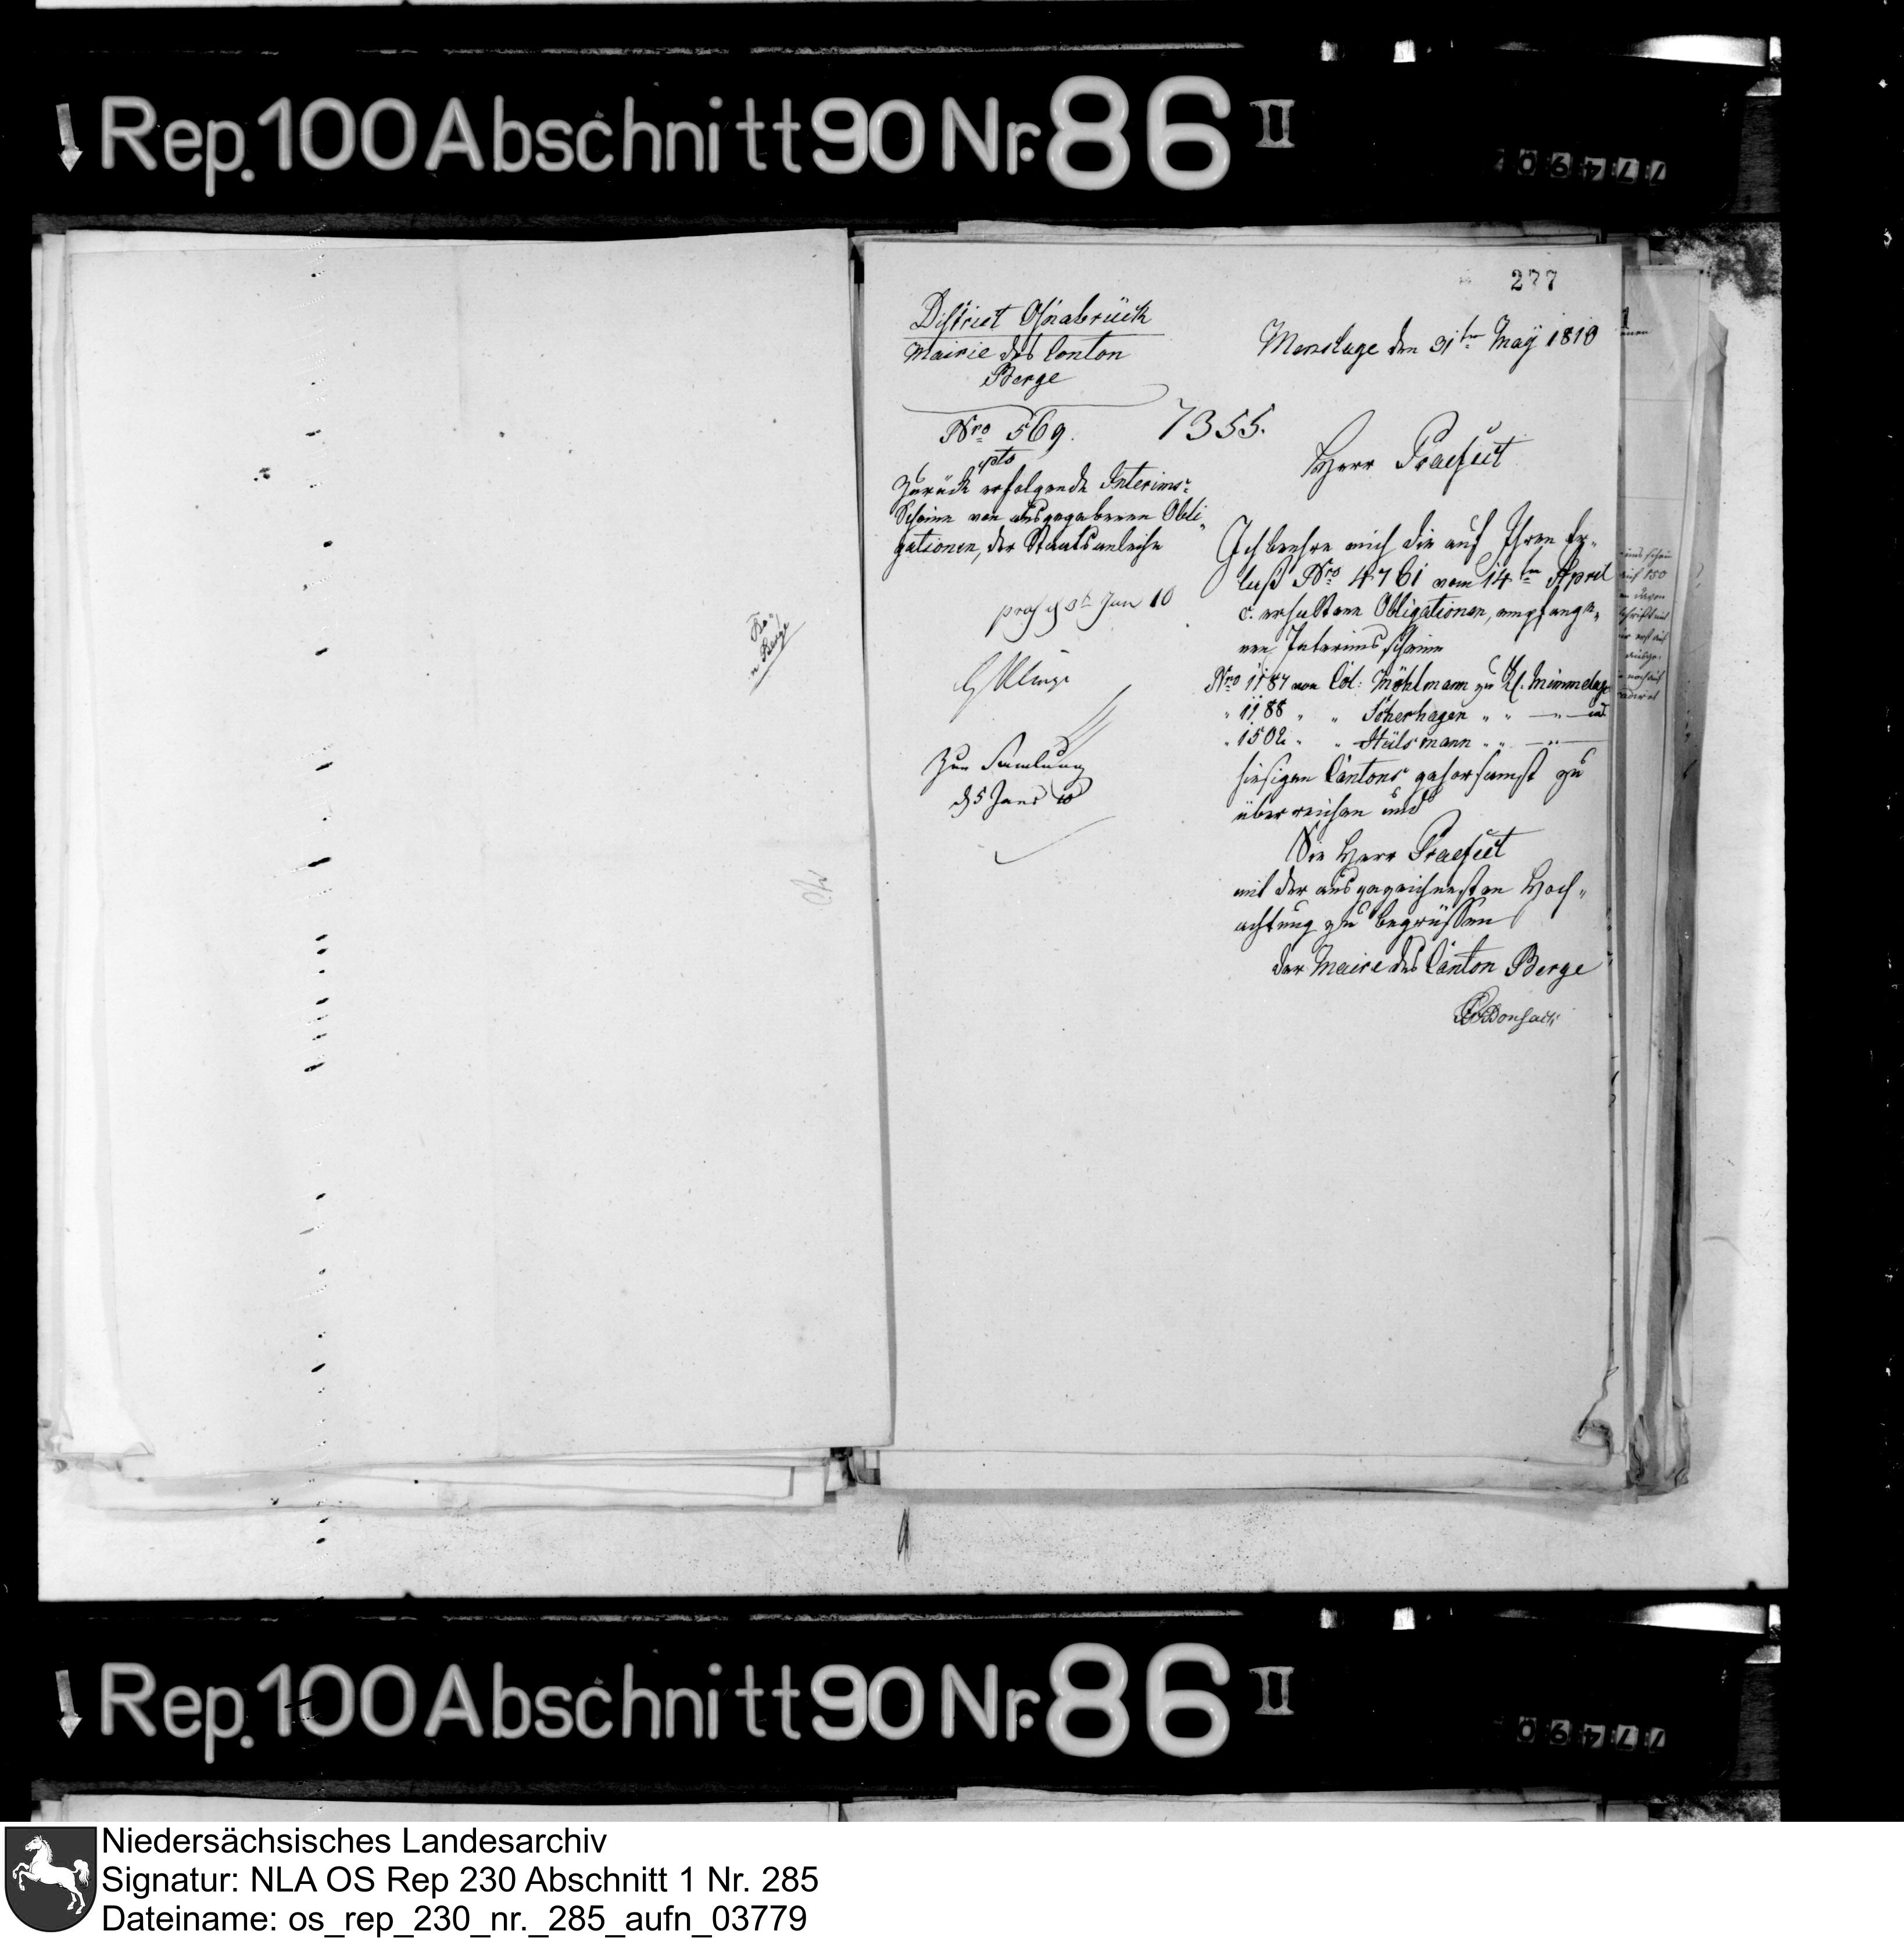 Rep. 100 Abschnitt 90 Nr. 86 II
277
District Osnabrück
Mairie des Canton
Berge
Nro 569.
pto
Zurück erfolgende Interims-
Scheine von ausgegebenen Obli-
gationen, der Staatsanleihe
Zur Samlung
Menslage den 31ten May 1810
7355.
Herr Praefect
Ich beehre mich die auf Ihren Er-
laß Nro 4761 vom 14ten April
c. erhaltene Obligationen, empfange-
nen Interims scheine
Nro 1187 von Col: Möhlmann zu Kl. Mimmelage
" 1188 " " Söherhagen " " — " —
" 1502 " " Hülsmann " " — " —
hiesigen Cantons gehorsamst zu
überreichen und
Sie Herr Praefect
mit der ausgezeichnesten Hoch-
achtung zu begrüssen
der Maire des Canton Berge
Rep. 100 Abschnitt 90 Nr. 86 II
Niedersächsisches Landesarchiv
Signatur: NLA OS Rep 230 Abschnitt 1 Nr. 285
Dateiname: os_rep_230_nr._285_aufn_03779